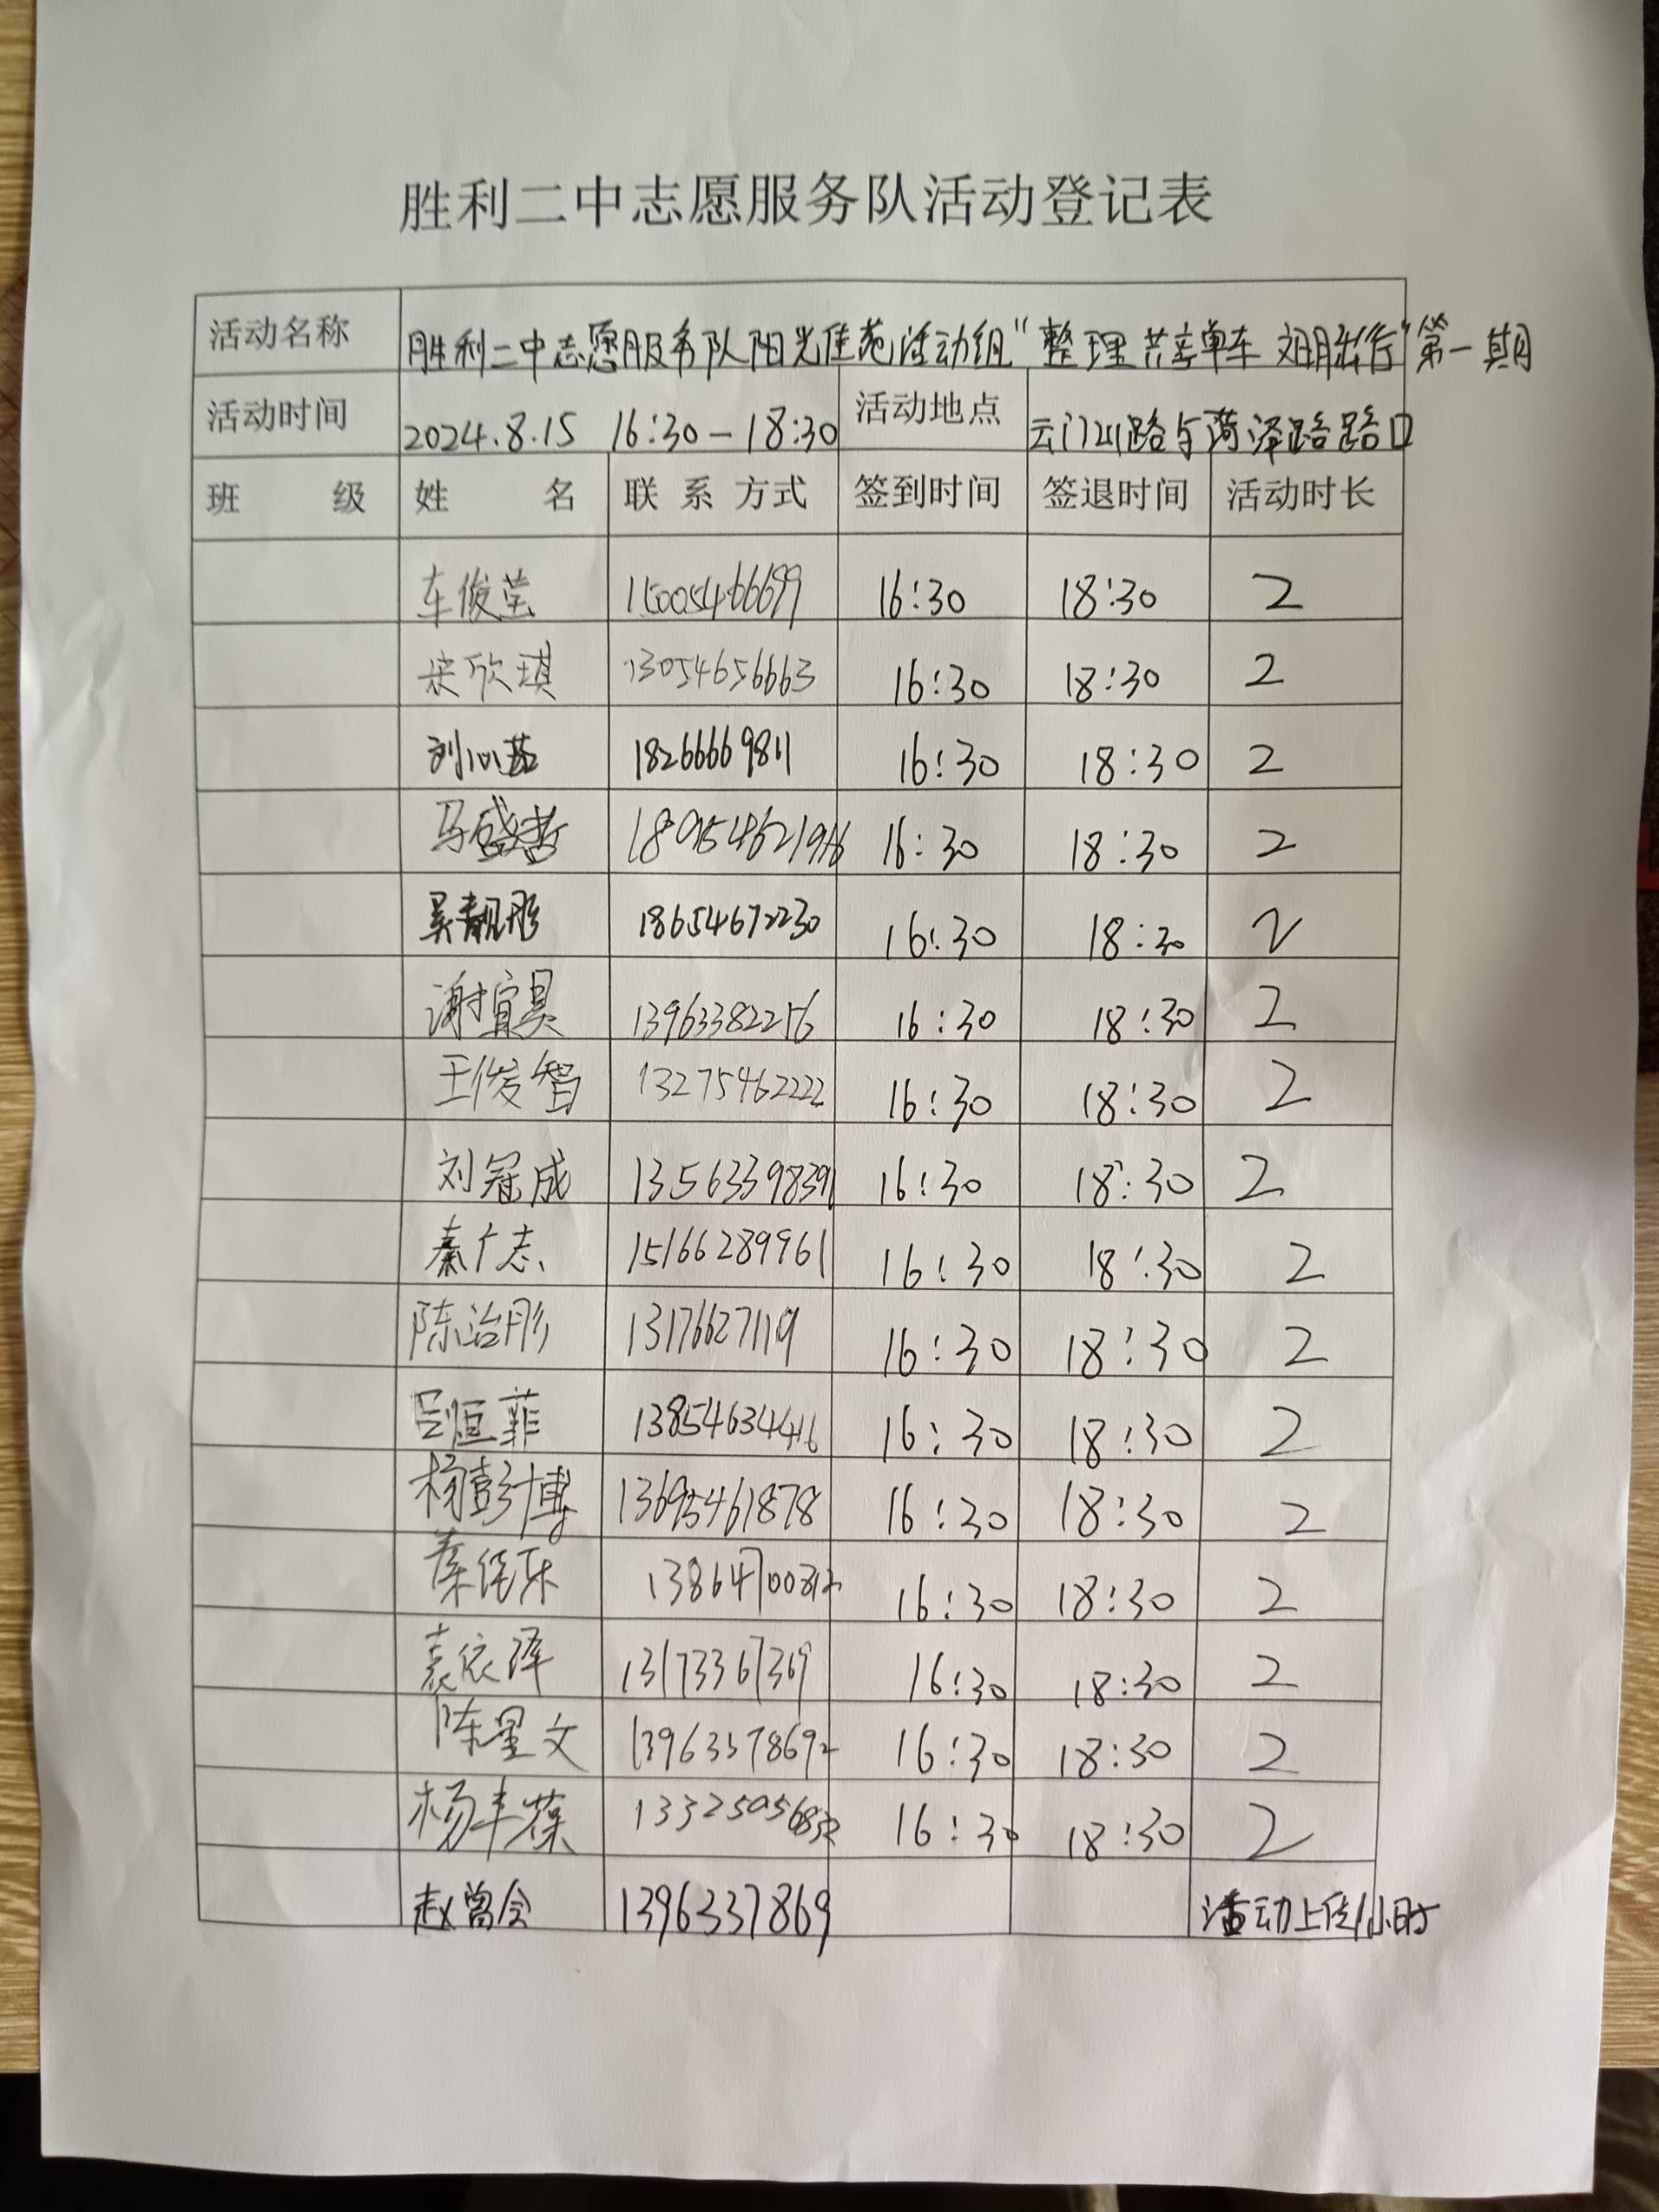 胜利二中志愿服务队活动登记表
活动名称 胜利二中志愿服务队阳光佳苑活动组“整理共享单车 文明出行”第一期
活动时间 2024.8.15 16:30-18:30 活动地点 云门山路与菏泽路路口
班 级 姓 名 联系方式 签到时间 签退时间 活动时长
车俊莹 15005466699 16:30 18:30 2
宋欣琪 13054656663 16:30 18:30 2
刘沁茹 18266669811 16:30 18:30 2
马盛喆 16:30 18:30 2
吴靓彤 18654672230 16:30 18:30 2
谢宜昊 13963382256 16:30 18:30 2
王俊智 13275462222 16:30 18:30 2
刘冠成 13563398391 16:30 18:30 2
秦广志 15166289961 16:30 18:30 2
陈治彤 13176627119 16:30 18:30 2
吕恒菲 13854634416 16:30 18:30 2
杨彭博 13695461878 16:30 18:30 2
16:30 18:30 2
袁依泽 13173367369 16:30 18:30 2
陈星文 13963378692 16:30 18:30 2
杨丰葆 16:30 18:30 2
赵曾会 1396337869 活动上传1小时